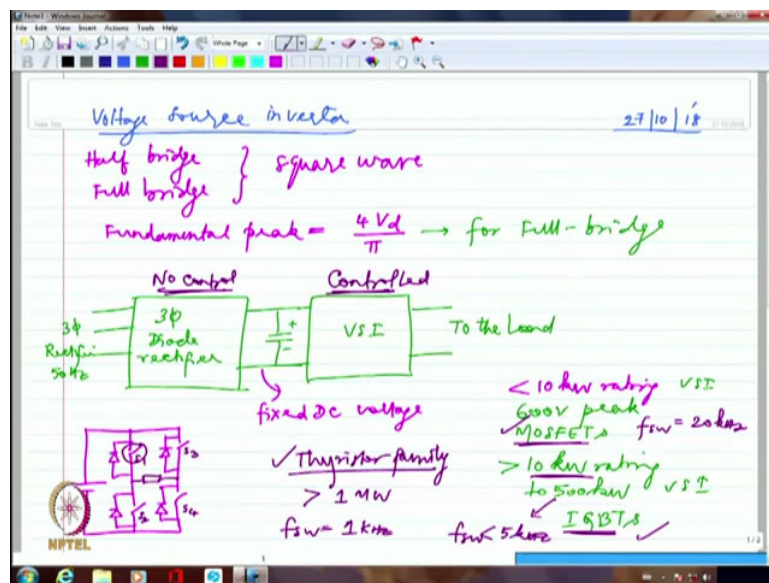 Note1 - Windows Journal
File Edit View Insert Actions Tools Help
Whole Page
Voltage source inverter
27/10/18
Half bridge
Full bridge } square wave
Fundamental peak = 4 Vd / π → for Full-bridge
No control
Controlled
3φ
50Hz
3φ
Diode
rectifier
+
-
VSI
To the Load
fixed DC voltage
<10 kW rating VSI
600V peak
✓MOSFETs fsw = 20kHz
>10 kW rating
to 500kW VSI
fsw< 5kHz IGBTs ✓
✓Thyristor family
> 1 MW
fsw = 1 kHz
S1
S3
S2
S4
NPTEL
1
1/2